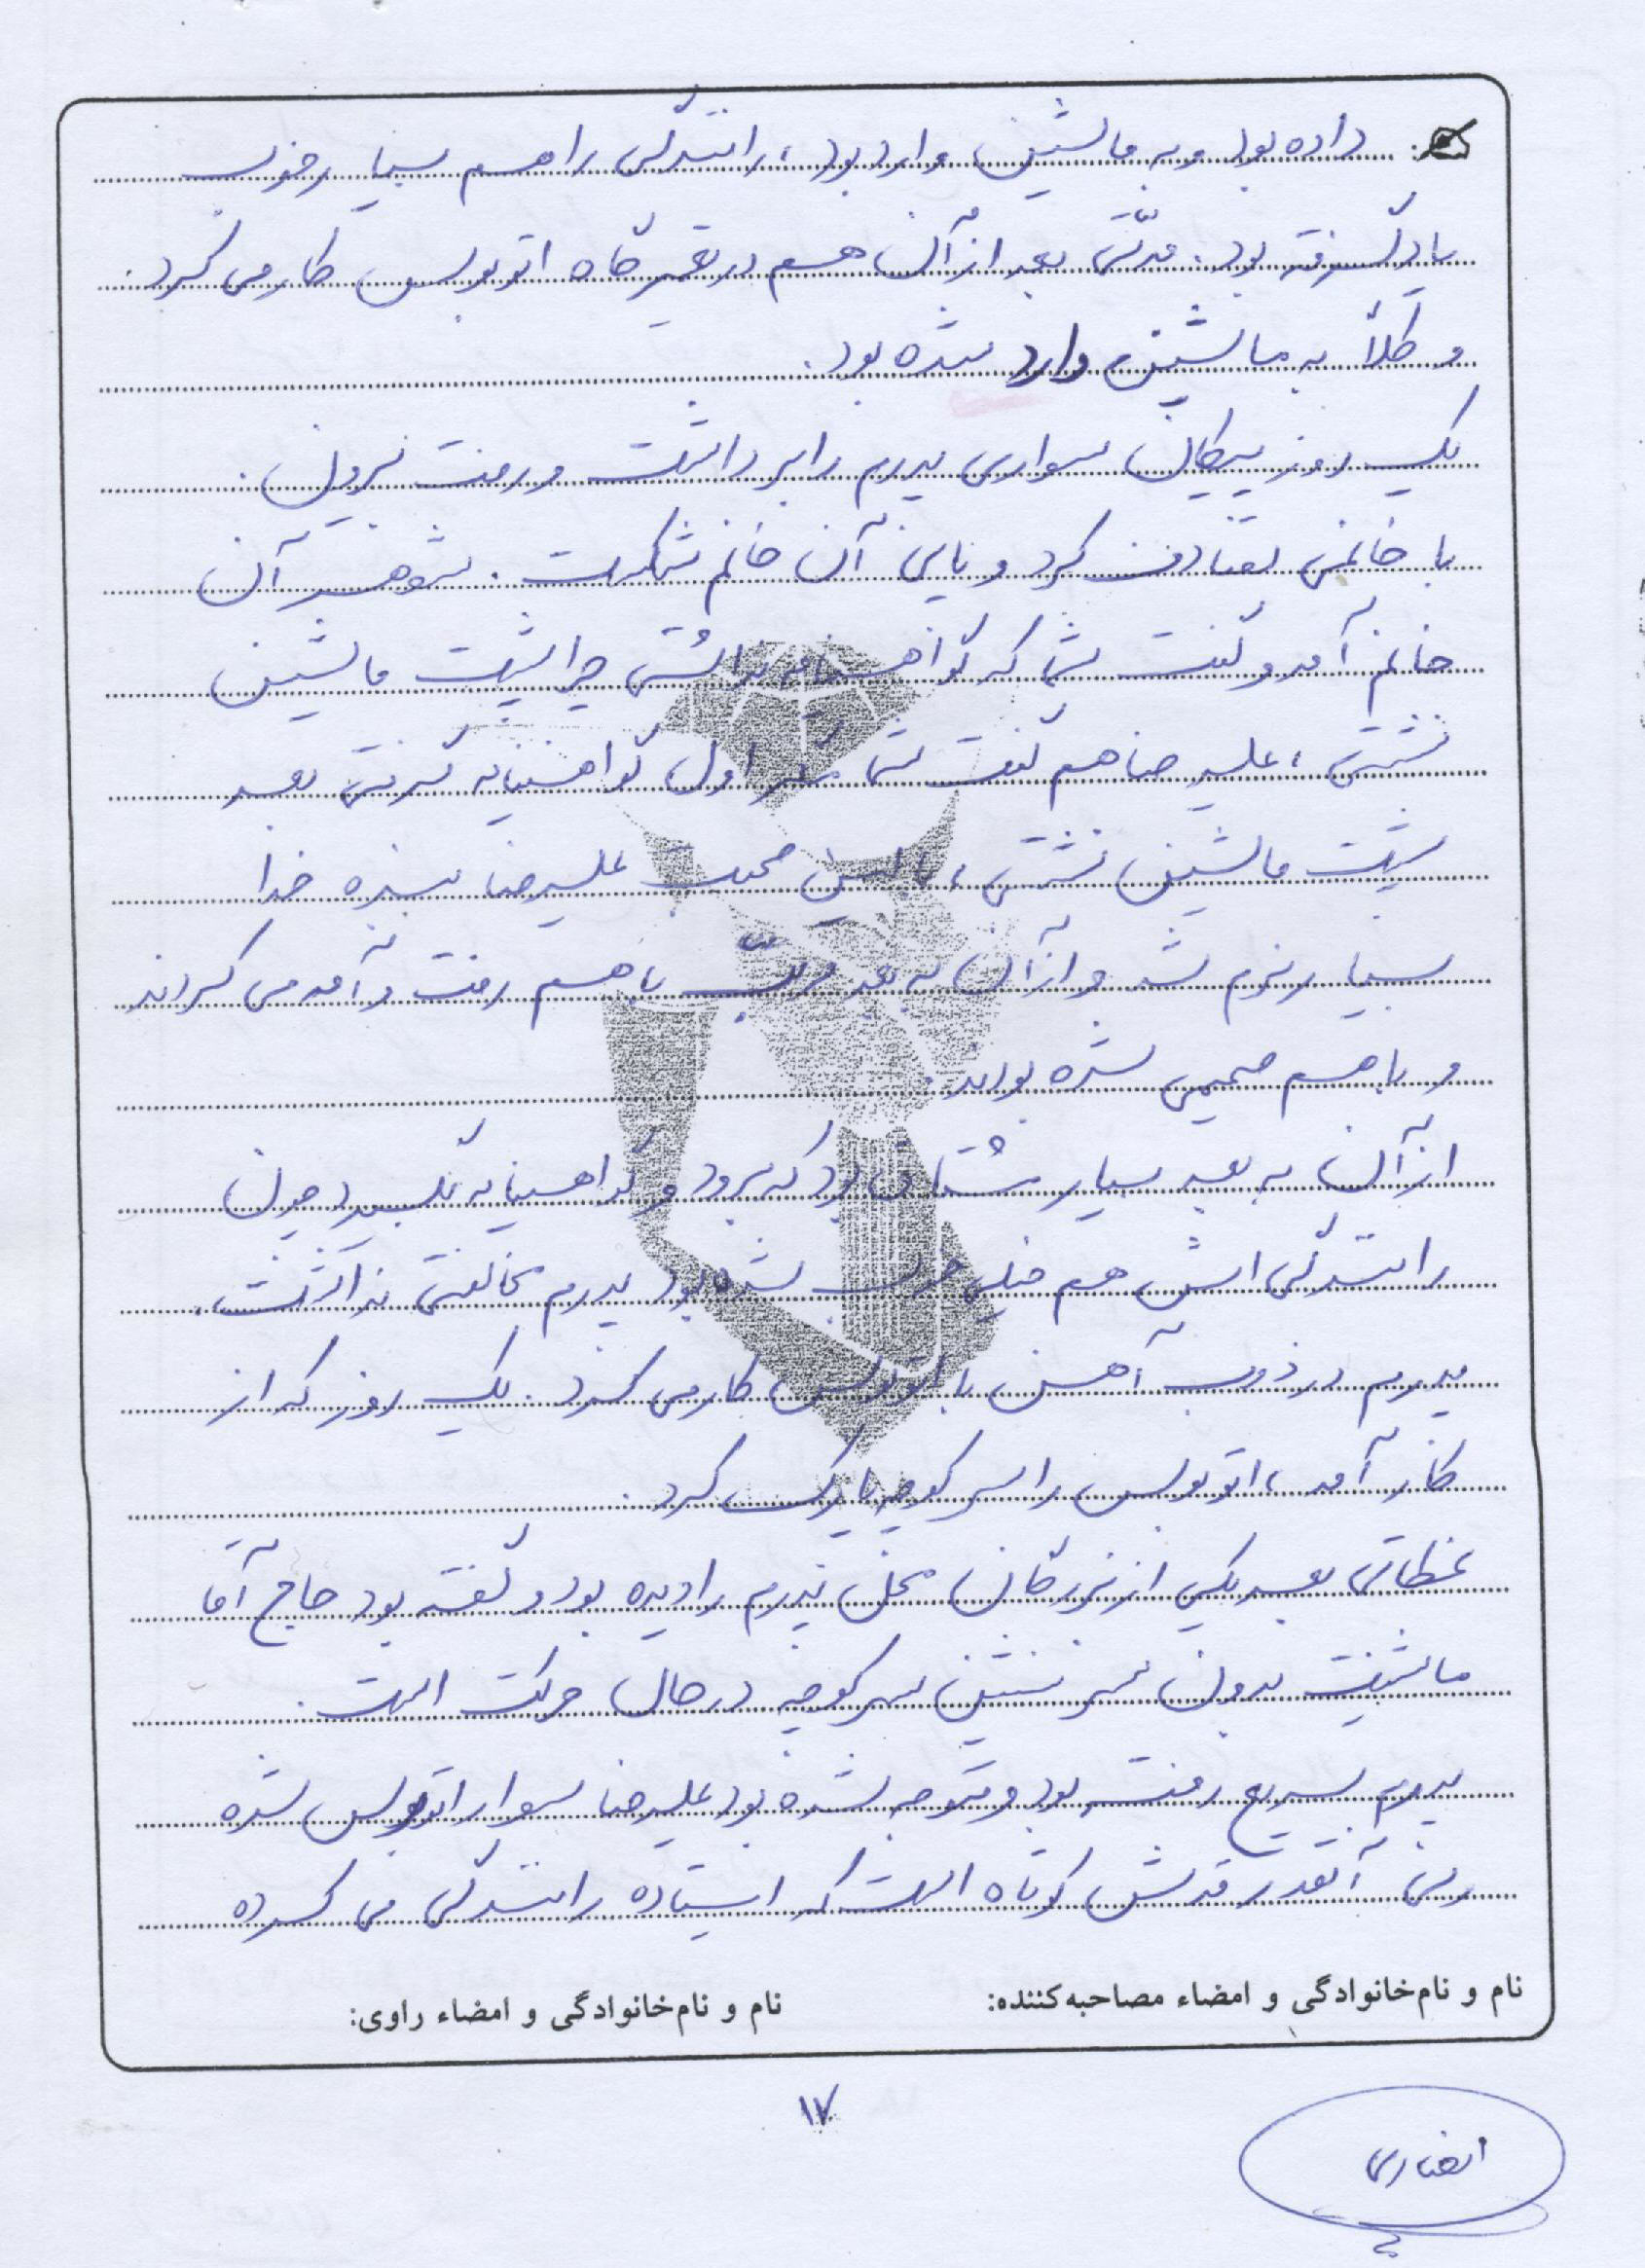 داده بود و به ماشین وارد بود، رانندگی را هم بسیار خوب
یاد گرفته بود. مدّتی بعد از آن هم در تعمیرگاه اتوبوس کار می کرد.
و کلاً به ماشین وارد شده بود.
یک روز پیکان سواری پدرم را برداشت و رفت بیرون.
با خانمی تصادف کرد و پای آن خانم شکست. شوهر آن
خانم آمد و گفت شما که گواهینامه نداشتی چرا پشت ماشین
نشستی، علیرضا هم گفت شما مگر اول گواهینامه گرفتی بعد
پشت ماشین نشستی، با این صحبت علیرضا بنده خدا
بسیار نرم شد و از آن به بعد مرتّب با هم رفت و آمد می کردند
و با هم صمیمی شده بودند.
از آن به بعد بسیار مشتاق بود که برود و گواهینامه بگیرد چون
رانندگی اش هم خیلی خوب شده بود پدرم مخالفتی نداشت.
پدرم در ذوب آهن با اتوبوس کار می کرد. یک روز که از
کار آمد، اتوبوس را سر کوچه پارک کرد.
لحظاتی بعد یکی از بزرگان محل پدرم را دیده بود و گفته بود حاج آقا
ماشینت بدون سرنشین سر کوچه در حال حرکت است.
پدرم سریع رفته بود و متوجه شده بود علیرضا سوار اتوبوس شده
ولی آنقدر قدش کوتاه است که ایستاده رانندگی می کرده
نام و نام‌خانوادگی و امضاء مصاحبه‌کننده:
نام و نام‌خانوادگی و امضاء راوی:
۱۷
انصاری